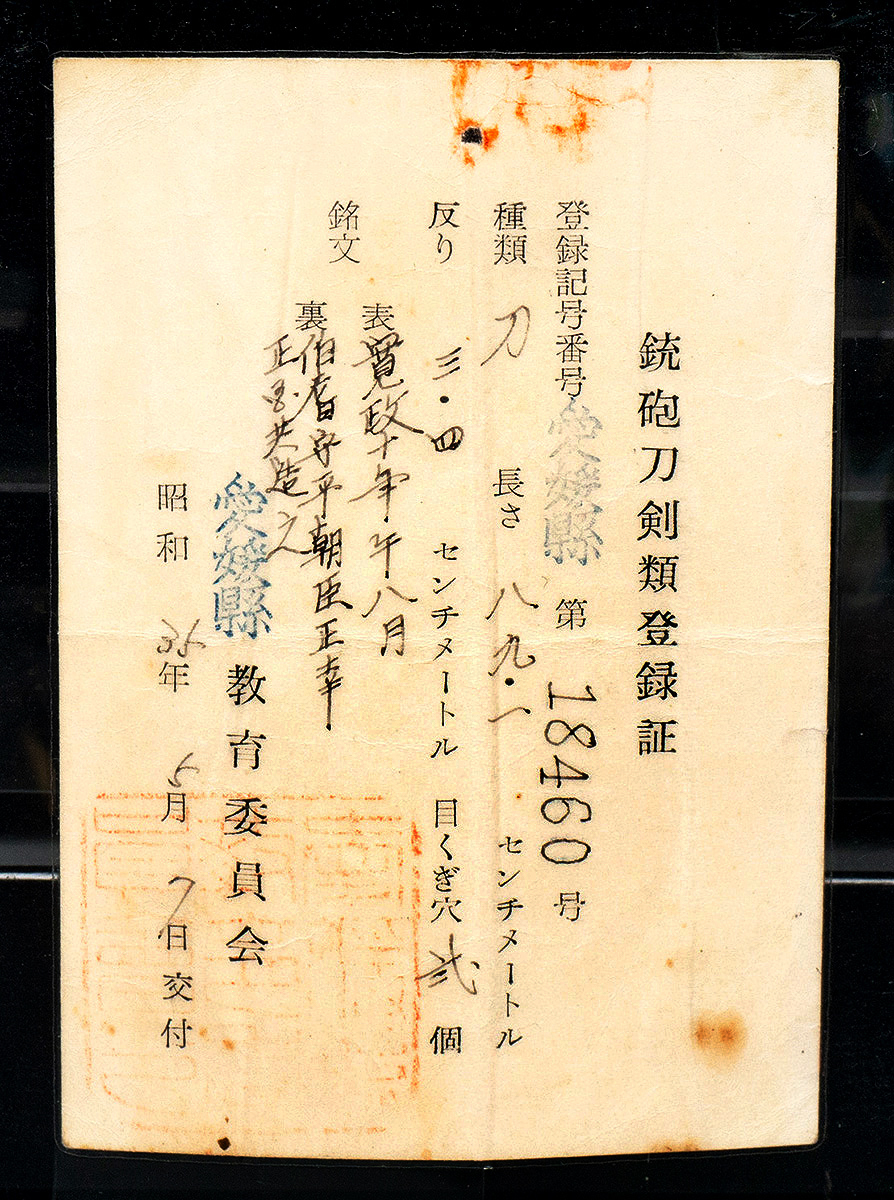 銃砲刀剣類登録証
登録記号番号 愛媛縣 第 18460 号
種類 刀 長さ 八九・一 センチメートル
反り 三・四 センチメートル 目くぎ穴 弐 個
銘文
表 寛政十年午八月
裏 伯耆守平朝臣正幸
正 共造之
愛媛縣 教育委員会
昭和 35年 5月 7日交付